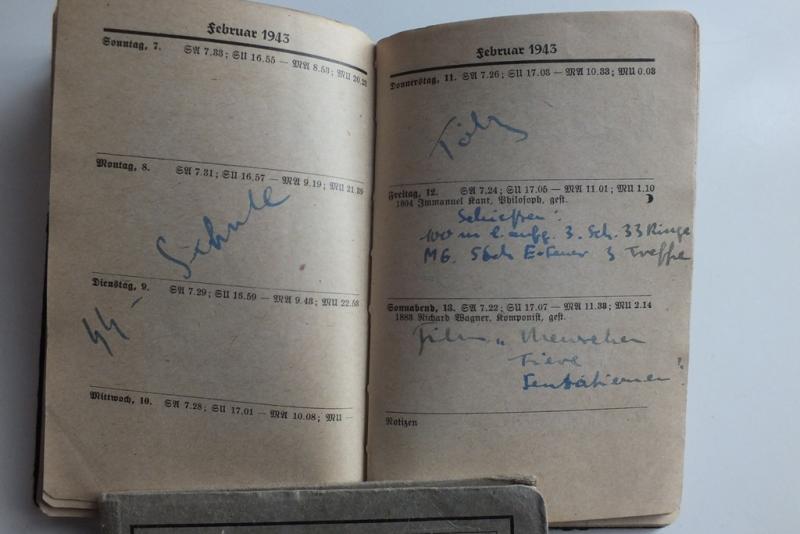 Februar 1943
Sonntag, 7. SA 7.33; SU 16.55 — MA 8.53; MU
Montag, 8. SA 7.31; SU 16.57 — MA 9.19; MU
SS- Schule
Dienstag, 9. SA 7.29; SU 16.59 — MA 9.43; MU 22.53
Mittwoch, 10. SA 7.28; SU 17.01 — MA 10.08; MU —
Februar 1943
Donnerstag, 11. SA 7.26; SU 17.03 — MA 10.33; MU 0.03
Tölz
Freitag, 12. SA 7.24; SU 17.05 — MA 11.01; MU 1.10
1804 Immanuel Kant, Philosoph, gest.
Schießen:
100 m l. aufg. 3. Sch. 33 Ringe
MG. 5 Sch E-Feuer 3 Treffer
Sonnabend, 13. SA 7.22; SU 17.07 — MA 11.38; MU 2.14
1883 Richard Wagner, Komponist, gest.
Film „Menschen
Tiere
Sensationen"
Notizen